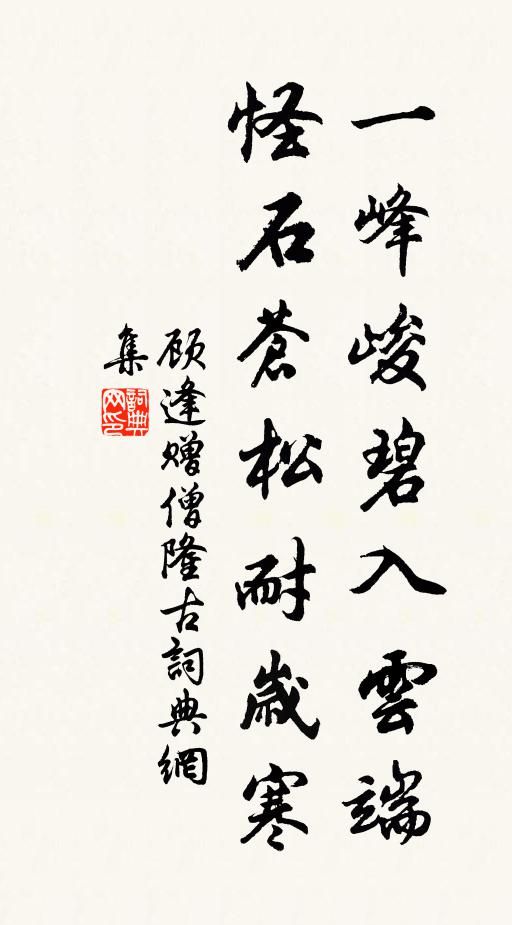 一峰峻碧入雲端
怪石蒼松耐歲寒
顾逢赠僧隆古詞典網
集
詞典
网印